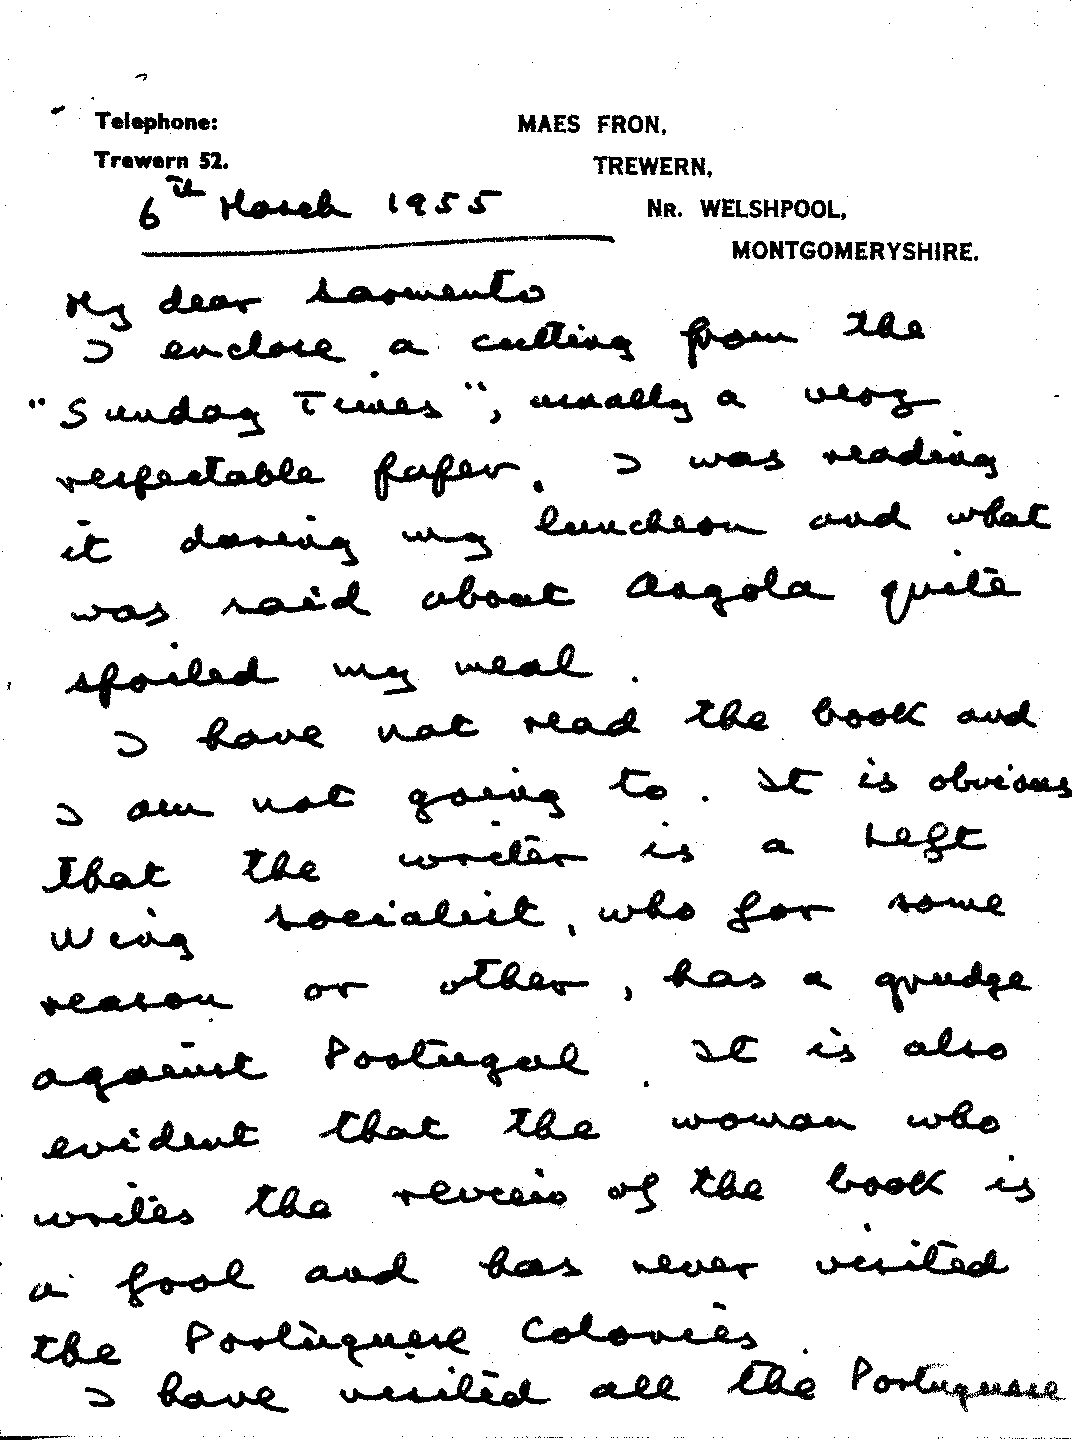 Telephone:
Trewern 52.
MAES FRON,
TREWERN,
NR. WELSHPOOL,
MONTGOMERYSHIRE.
6th March 1955
My dear Sarmento
I enclose a cutting from the
"Sunday Times", usually a very
respectable paper. I was reading
it during my luncheon and what
was said about Angola quite
spoiled my meal.
I have not read the book and
I am not going to. It is obvious
that the writer is a Left
Wing socialist, who for some
reason or other, has a grudge
against Portugal. It is also
evident that the woman who
writes the review of the book is
a fool and has never visited
the Portuguese Colonies.
I have visited all the Portuguese